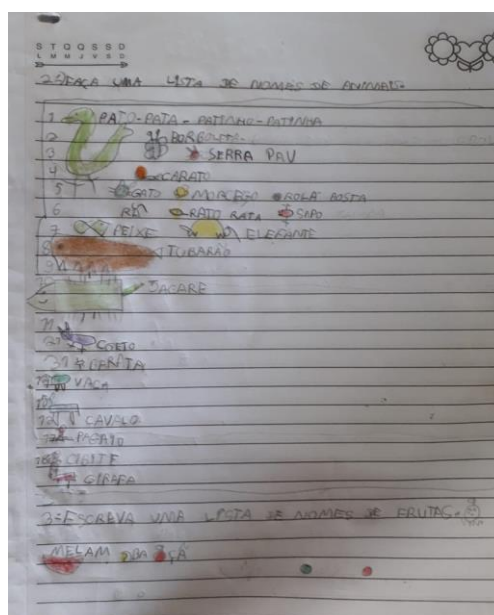 S T Q Q S S D
L M M J V S D
2-FAÇA UMA LISTA DE NOMES DE ANIMAIS-
1 PATO-PATA-PATINHO-PATINHA
2
3 SERRA PAU
4 CARATO
5 GATO MORCEGO ROLA BOSTA
6 RATO RATA SAPO
7 PEIXE ELEFANTE
8 TUBARÃO
9
10 JACARE
11
COETO
BARATA
VACA
CAVALO
PAGAIO
GIRAFA
3-ESCREVA UMA LISTA DE NOMES DE FRUTAS-
MELAM